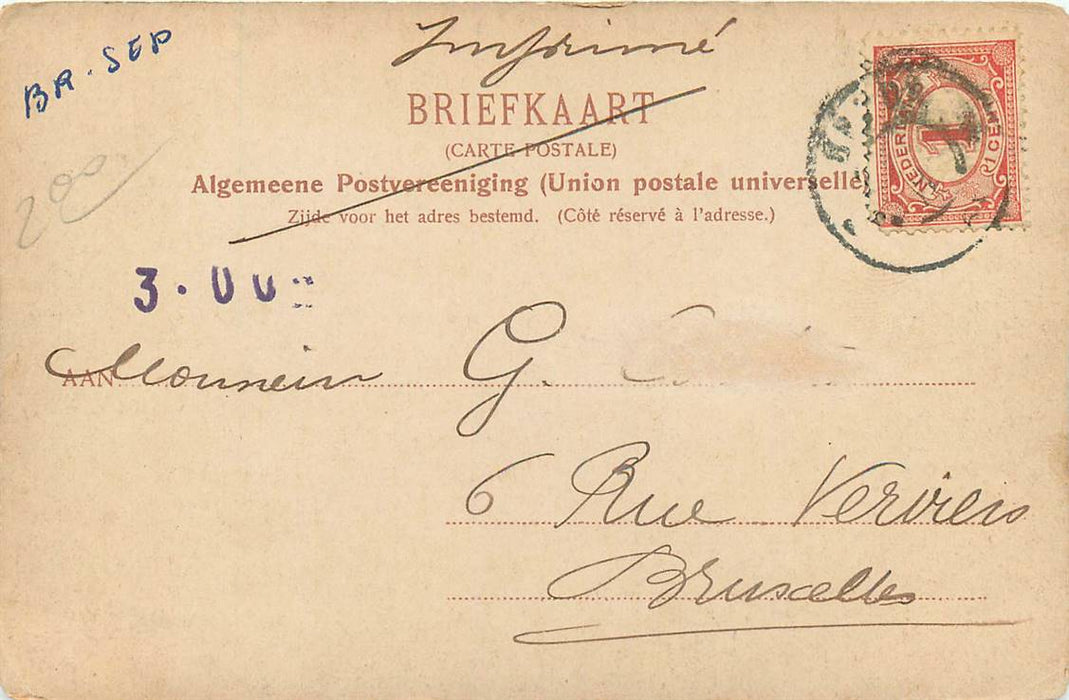 BR. SEP
Imprimé
BRIEFKAART
(CARTE POSTALE)
Algemeene Postvereeniging (Union postale universelle)
Zijde voor het adres bestemd. (Côté réservé à l'adresse.)
NEDERL
1
1 CENT
200
3.00
AAN Monsieur G.
6 Rue Verviers
Bruxelles